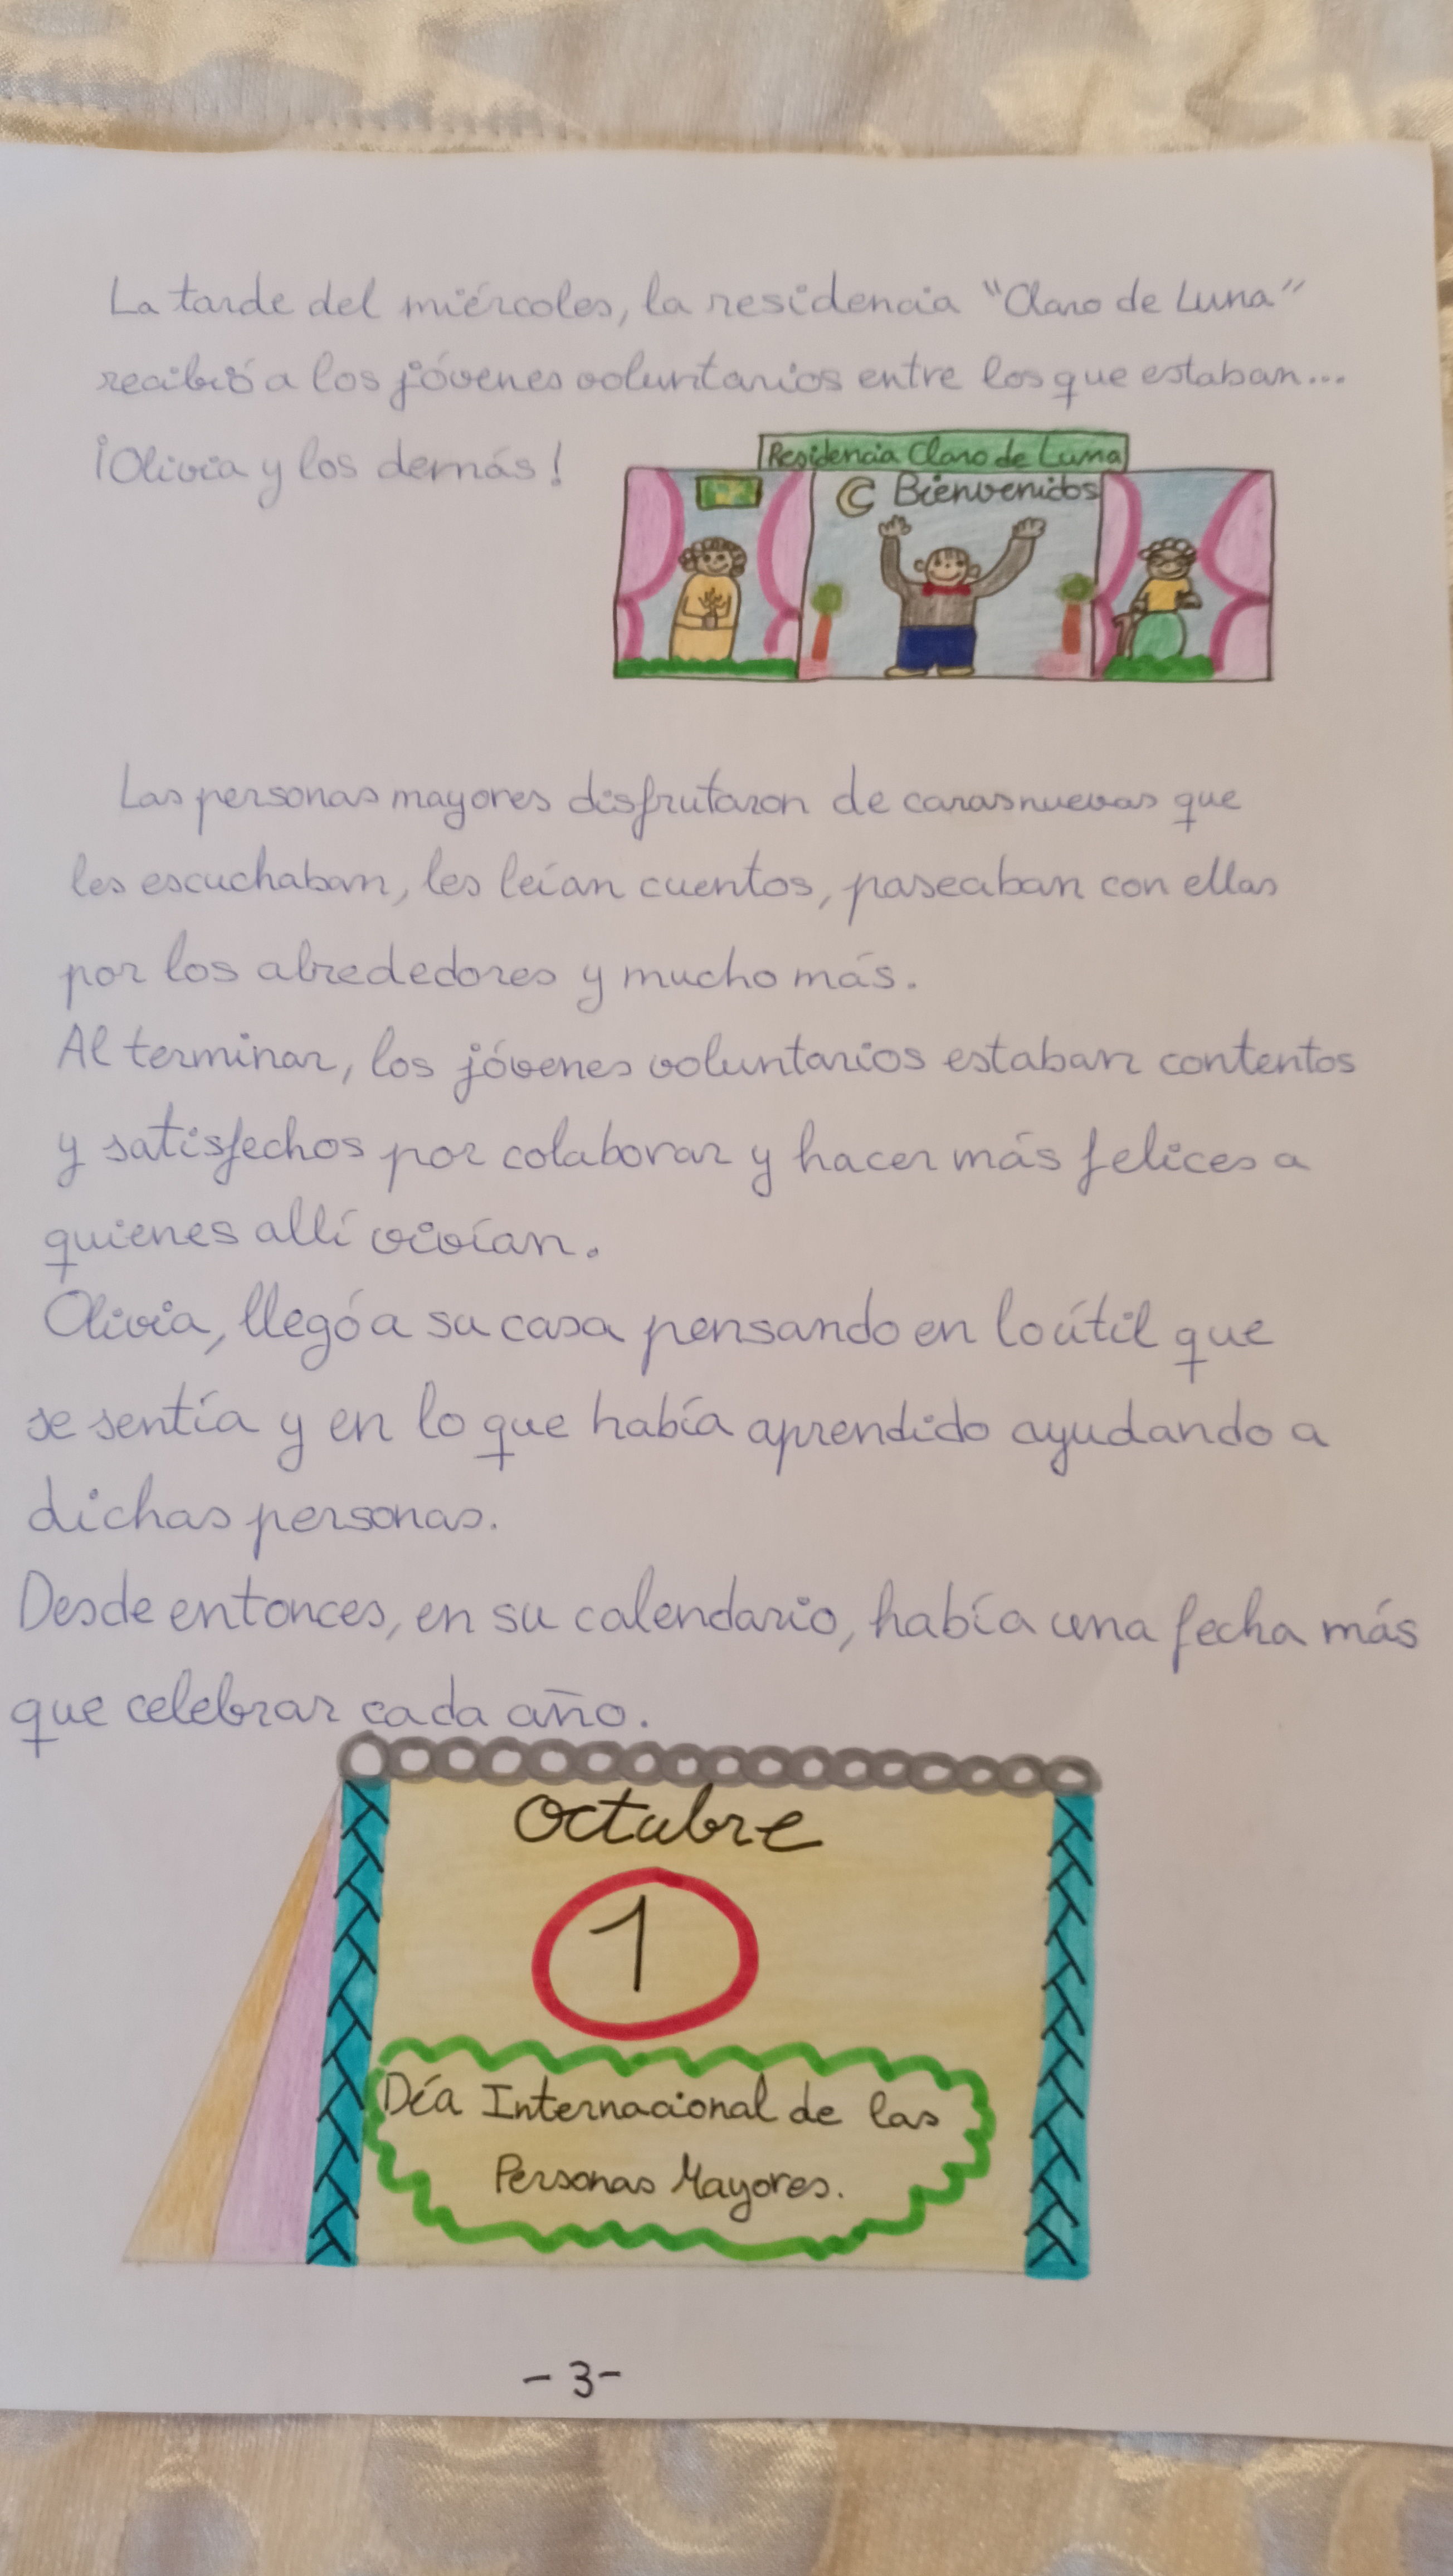 La tarde del miércoles, la residencia "Claro de Luna"
recibió a los jóvenes voluntarios entre los que estaban...
¡Olivia y los demás!
Residencia Claro de Luna
Bienvenidos
Las personas mayores disfrutaron de caras nuevas que
les escuchaban, les leían cuentos, paseaban con ellas
por los alrededores y mucho más.
Al terminar, los jóvenes voluntarios estaban contentos
y satisfechos por colaborar y hacer más felices a
quienes allí vivían.
Olivia, llegó a su casa pensando en lo útil que
se sentía y en lo que había aprendido ayudando a
dichas personas.
Desde entonces, en su calendario, había una fecha más
que celebrar cada año.
Octubre
1
Día Internacional de las
Personas Mayores.
- 3 -